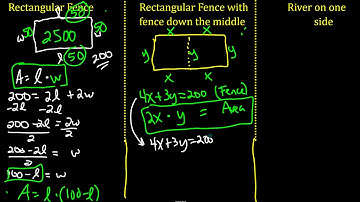 Rectangular Fence
l 50
w 50 2500 50 w
l 50 200
A = l · w
200 = 2l + 2w
-2l -2l
200-2l = 2w
2 2
200-2l = w
2
100-l = w
A = l · (100-l)
Rectangular Fence with
fence down the middle
x x
y y y
x x
4x+3y=200 (Fence)
2x · y = Area
4x+3y=200
River on one
side